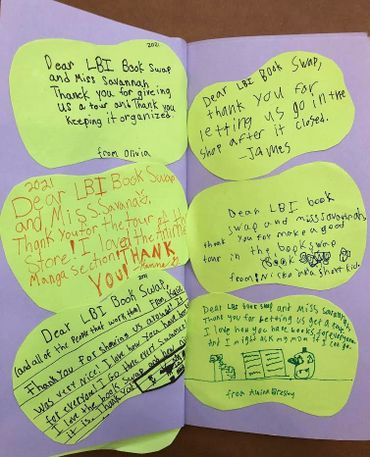 2021
Dear LBI Book Swap
and Miss Savannah
Thanck you for giveing
Us a tour and Thank you
keeping it organized.
from Olivia
2021
Dear LBI Book Swap
and Miss.Savanah,
Thank you for the tour of the
store! I love the Anime
Manga section! THANK
YOU!
2021
Dear LBI Book Swap,
(and all of the people that work tha)
Thank you for showing us around. It
was very nice. I love how you have
for everyone. I go there every summer!
I love the book swap and how
it is. Thank you
Dear LBI Book Swap,
thank you for
letting us go in the
shop after it closed.
-James
Dear LBI book
swap and miss savannah,
thank you for make a good
tour in the book swap
from: Nicko
Dear LBI Book Swap and Miss Savannah
Thank you for Letting us get a
I love how you have books for everyone
And I might ask my mom if I can go.
from